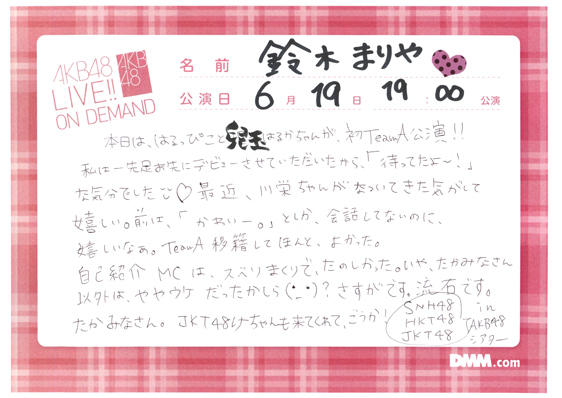 AKB48
LIVE!!
ON DEMAND
AKB
48
名前 鈴木まりや
公演日 6月19日 19:00公演
本日は、はるっぴこと兒玉はるかちゃんが、初TeamA公演!!
私は一足お先にデビューさせていただいたから、「待ってたよ~!」
な気分でした♡最近、川栄ちゃんがなついてきた気がして
嬉しい。前は、「かわいー。」としか、会話してないのに、
嬉しいなぁ。TeamA移籍してほんと、よかった。
自己紹介MCは、スベりまくりで、たのしかった。いや、たかみなさん
以外は、ややウケだったかしら(・_・)?さすがです。流石です。
たかみなさん。JKT48はーちゃんも来てくれて、ごうか!
SNH48
HKT48
JKT48
in
AKB48
シアター
DMM.com